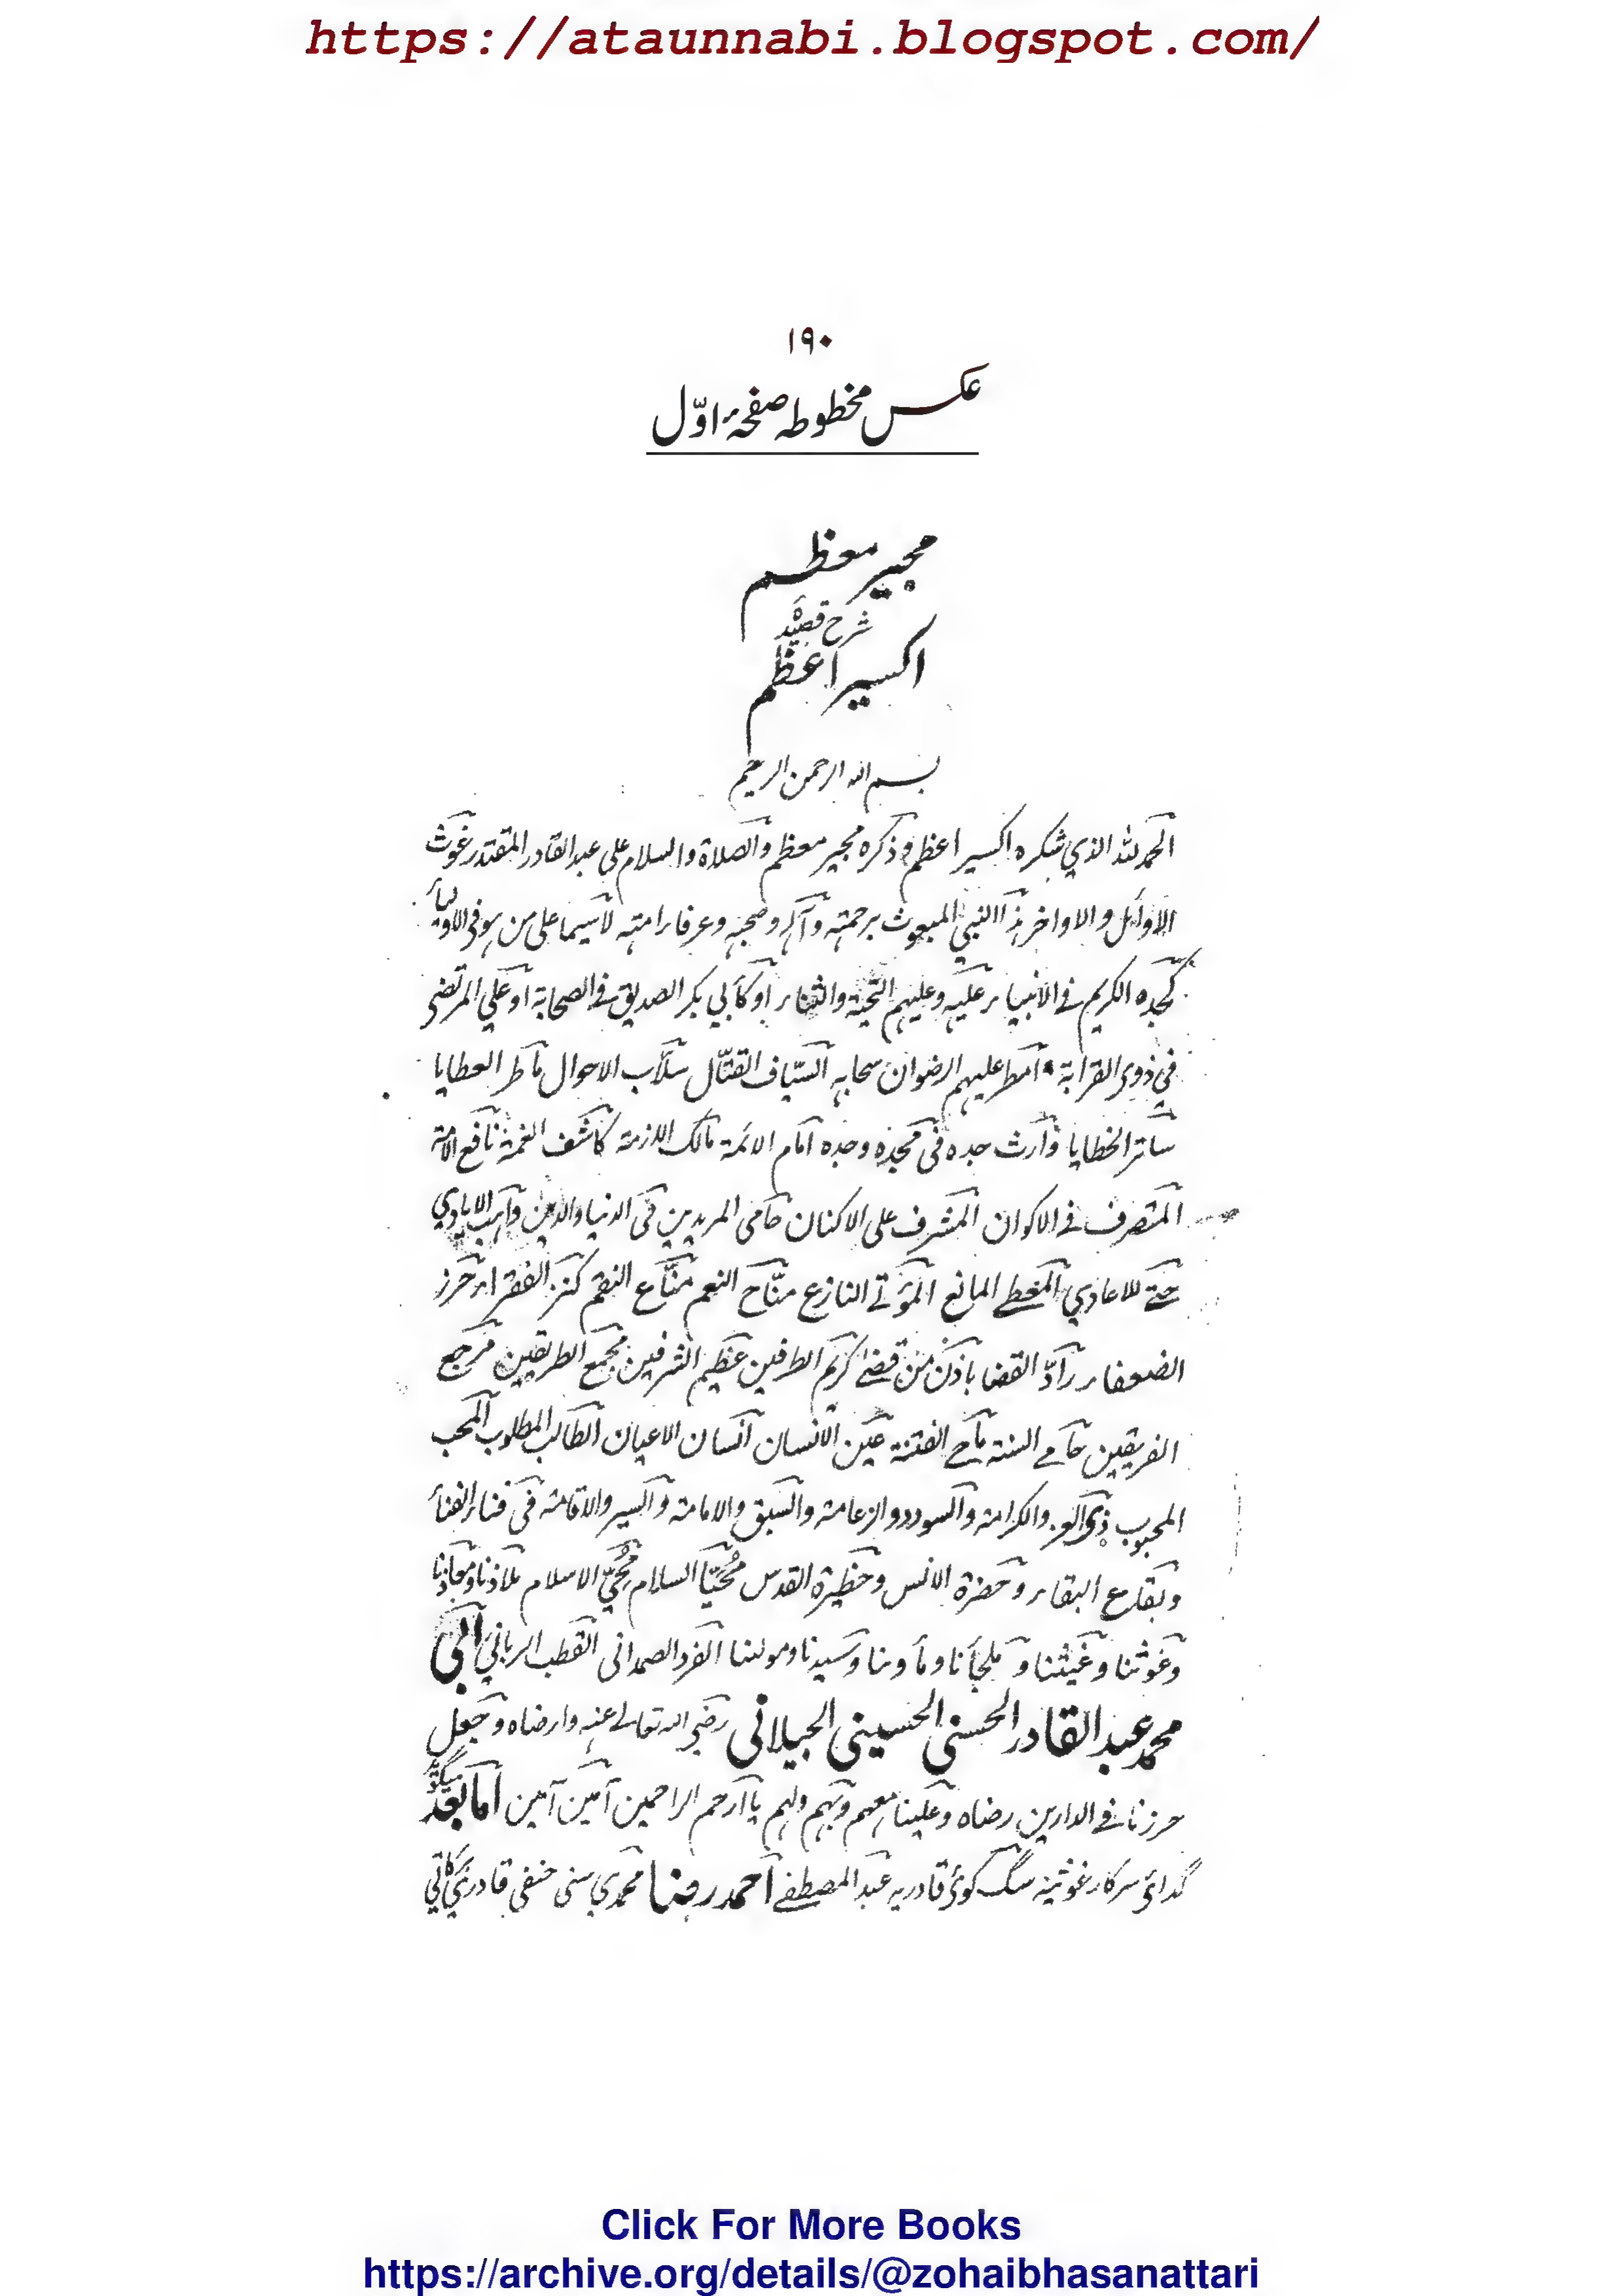 https://ataunnabi.blogspot.com/
۱۹۰
عکس مخطوطہ صفحۂ اوّل
مجیر معظم
شرح قصیدہ
اکسیر اعظم
بسم اللہ الرحمن الرحیم
الحمد للہ الذي شکرہ اکسیر اعظم وذکرہ مجیر معظم والصلاة والسلام علی عبد القادر المقتدر غوث
الاوائل والاواخر النبي المبعوث برحمتہ وآلہ وصحبہ وعرفاء امتہ لاسیما علی من ہو فی الاولیاء
کجدہ الکریم فی الانبیاء علیہ وعلیہم التحیة والثناء او کأبي بکر الصدیق فی الصحابة او علي المرتضی
في ذوی القرابة امطر علیہم الرضوان سحابہ السیّاف القتّال سلّاب الاحوال ماطر العطایا
ساتر الخطایا وارث جدہ فی مجدہ وجدہ امام الائمة مالک الازمة کاشف الغمة نافع الامة
المتصرف فی الاکوان المشرف علی الاکنان حامی المریدین فی الدنیا والدین واہب الایادي
حتے للاعادي المعطے المانع المؤتے النازع منّاح النعم منّاع النقم کنز الفقراء حرز
الضعفاء رادّ القضا باذن من قضے کریم الطرفین عظیم الشرفین مجمع الطریقین مرجع
الفریقین حامے السنة ماحي الفتنة عین الانسان انسان الاعیان الطالب المطلوب المحب
المحبوب ذی العز والکرامة والسودد والزعامة والسبق والامامة والسیر والاقامة فی فناء الفناء
وبقاع البقاء وحضرة الانس وحظیرة القدس مُحَیّا السلام مُحیي الاسلام ملاذنا ومعاذنا
وغوثنا وغیثنا وملجأنا ومأوٰنا وسیدنا ومولٰنا الفرد الصمدانی القطب الرباني ابی
محمد عبد القادر الحسنی الحسینی الجیلانی رضی اللہ تعالے عنہ وارضاہ وجعل
حرزنا فی الدارین رضاہ وعلینا معہم وبہم ولہم یا ارحم الراحمین آمین آمین اما بعد میگوید
گدائ سرکار غوثیہ سگ کوئ قادریہ عبد المصطفے احمد رضا محمدي سنی حنفی قادري برکاتي
Click For More Books
https://archive.org/details/@zohaibhasanattari